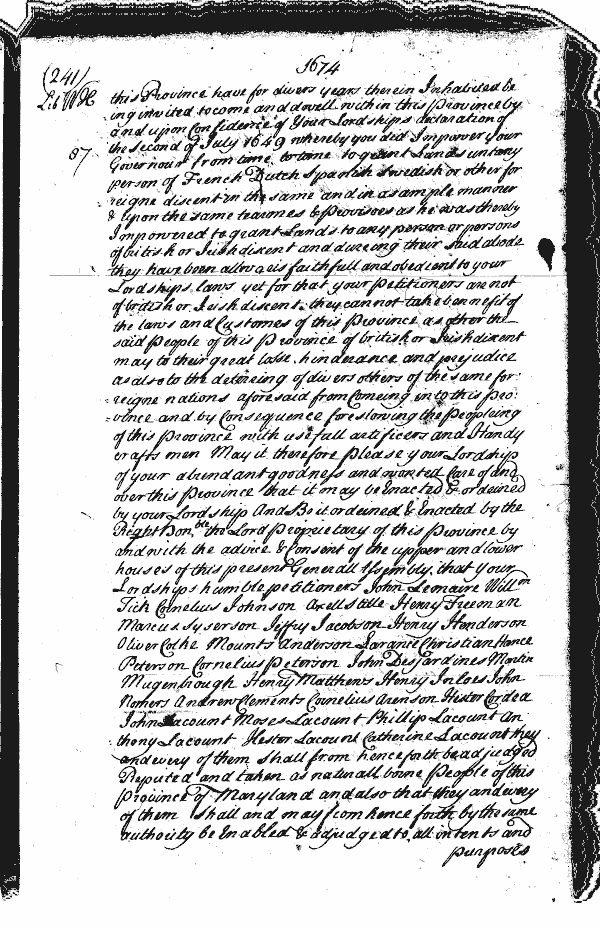 1674
(241)
Lib WH
this Province have for divers years therein Inhabited be
ing invited to come and dwell within this Province by
and upon Confidence of Your Lordships declaration of
the second of July 1649 whereby you did Impower your
67
Governour from time to time to grant Lands unto any
person of French Dutch Spanish Swedish or other for
reigne discent in the same and in as ample manner
& upon the same tearmes & Provisoes as he was thereby
Impowered to grant Lands to any person or persons
of british or Irish discent and dureing their said abode
they have been allwaies faithfull and obedient to your
Lordships laws yet for that your Petitioners are not
of british or Irish discent they cannot take bennefit of
the laws and Customes of this Province as other the
said People of this Province of british or Irish discent
may to their great losse hinderance and prejudice
as also to the deterring of divers others of the same for:
reigne nations aforesaid from Comeing into this Pro:
vince and by Consequence foreslowing the Peopleing
of this Province with usefull artificers and Handy
crafts men May it therefore please your Lordship
of your abundant goodness and wonted Care of and
over this Province that it may be Enacted & ordeined
by your Lordship And Be it ordeined & Enacted by the
Right Honble the Lord Proprietary of this Province by
and with the advice & Consent of the upper and lower
houses of this present Generall Assembly that your
Lordships humble petitioners John Lemaire Willm
Tick Cornelius Johnson Axell Stille Henry Freeman
Marcus Syserson Jeffry Jacobson Henry Henderson
Oliver Colke Mounts Anderson Larance Christian Hance
Peterson Cornelius Peterson John Desjardines Martin
Mugenbrough Henry Matthews Henry Inloes John
Nomers Andrew Clements Cornelius Arenson Hester Cordea
John Lacount Moses Lacount Phillip Lacount An
thony Lacount Hester Lacount Catherine Lacount they
and every of them shall from henceforth be adjudged
Reputed and taken as naturall borne People of this
Province of Maryland and also that they and every
of them shall and may from henceforth by the same
authority be Enabled & adjudged to all intents and
purposes